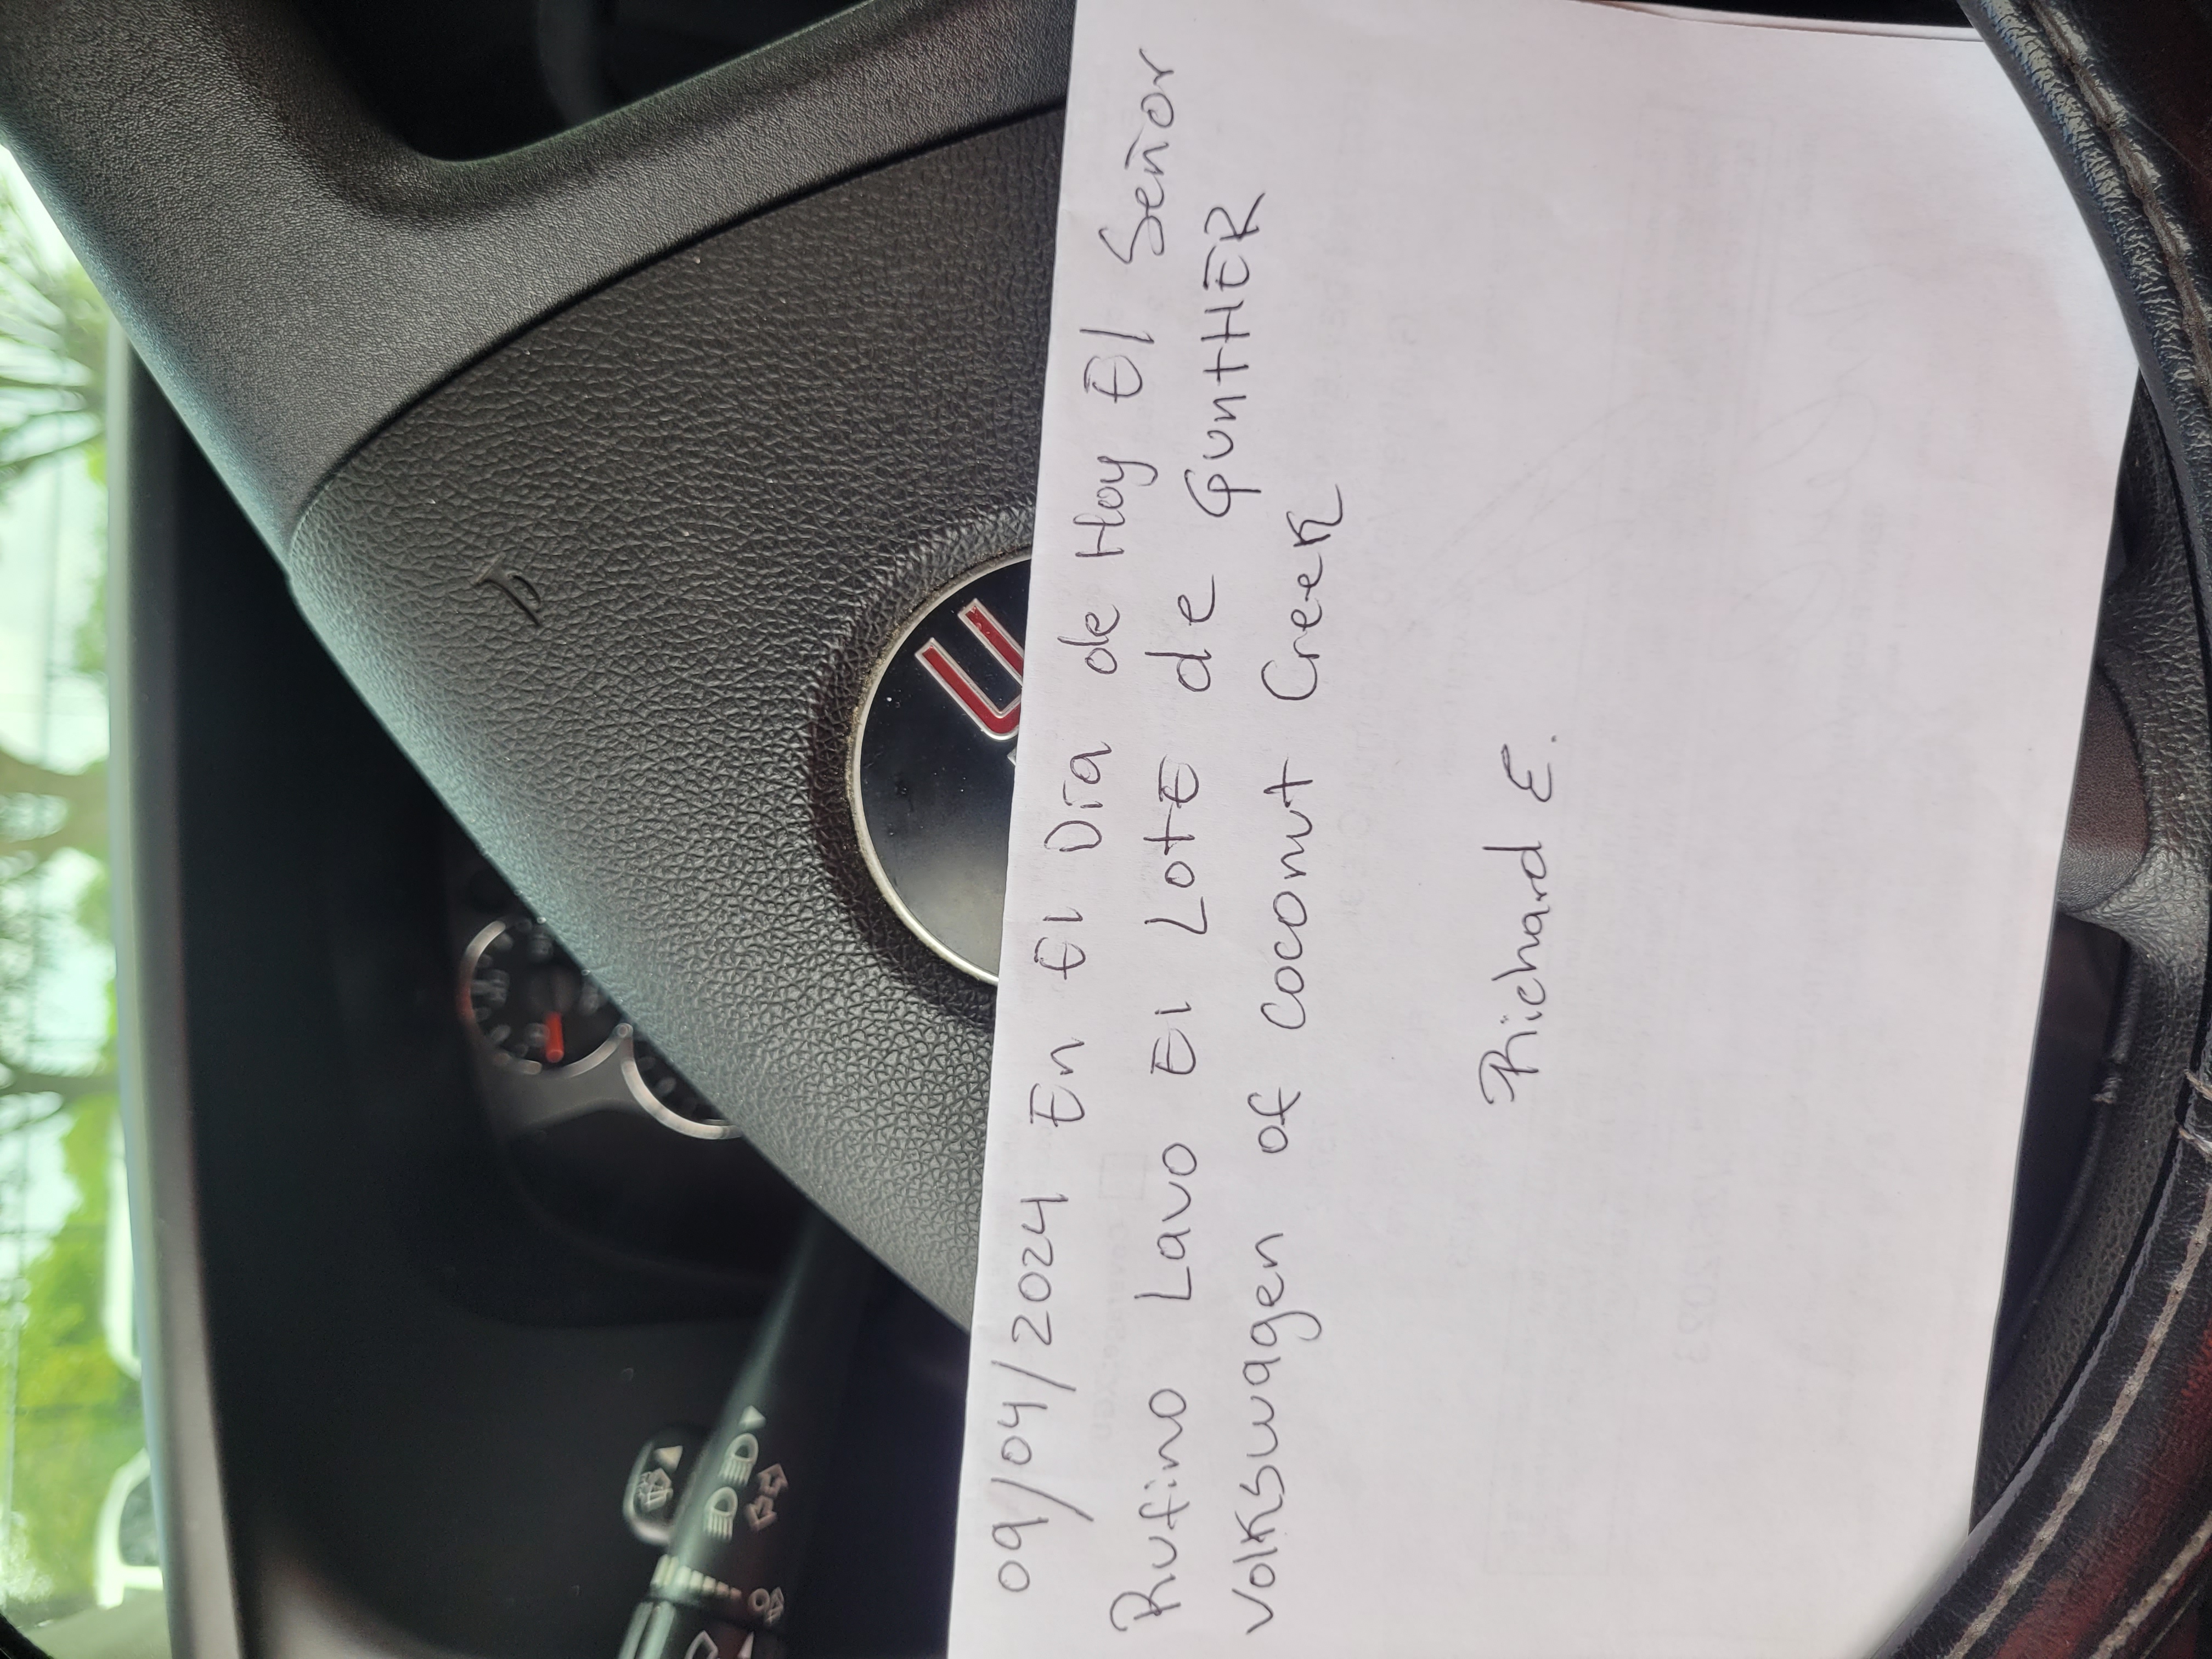 09/04/2024 En El Día de Hoy El Señor
Rufino Lavo El Lote de GuntHER
Volkswagen of coconut Creek
Richard E.